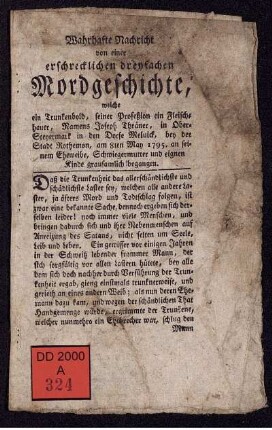 Wahrhafte Nachricht
von einer
erschrecklichen dreyfachen
Mordgeschichte,
welche
ein Trunkenbold, seiner Profession ein Fleisch
hauer, Namens Joseph Thräner, in Ober-
Steyermark in den Dorfe Melnick, bey der
Stadt Rothemon, am 8ten May 1795. an sei
nem Eheweibe, Schwiegermutter und eignen
Kinde grausamlich begangen.
Daß die Trunkenheit das allerschändlichste und
schädlichste Laster sey, welchen alle andere Las
ter, ja öfters Mord und Todschlag folgen, ist
zwar eine bekannte Sache, dennoch ergeben sich dem
selben leider! noch immer viele Menschen, und
bringen dadurch sich und ihre Nebenmenschen auf
Anreizung des Satans, nicht selten um Seele,
Leib und Leben. Ein gewisser vor einigen Jahren
in der Schweiz lebender frammer Mann, der
sich sorgfältig vor allen Lastern hütete, bey alle
dem sich doch nachher durch Verführung der Trun
kenheit ergab, gieng einsmals trunknerweise, und
gerieth an eines andern Weib; als nun deren Ehe
mann dazu kam, und wegen der schändlichen That
Handgemenge wurde, ergrimmte der Trunkene,
welcher nunmehro ein Ehebrecher war, schlug den
Mann
DD 2000
A
324